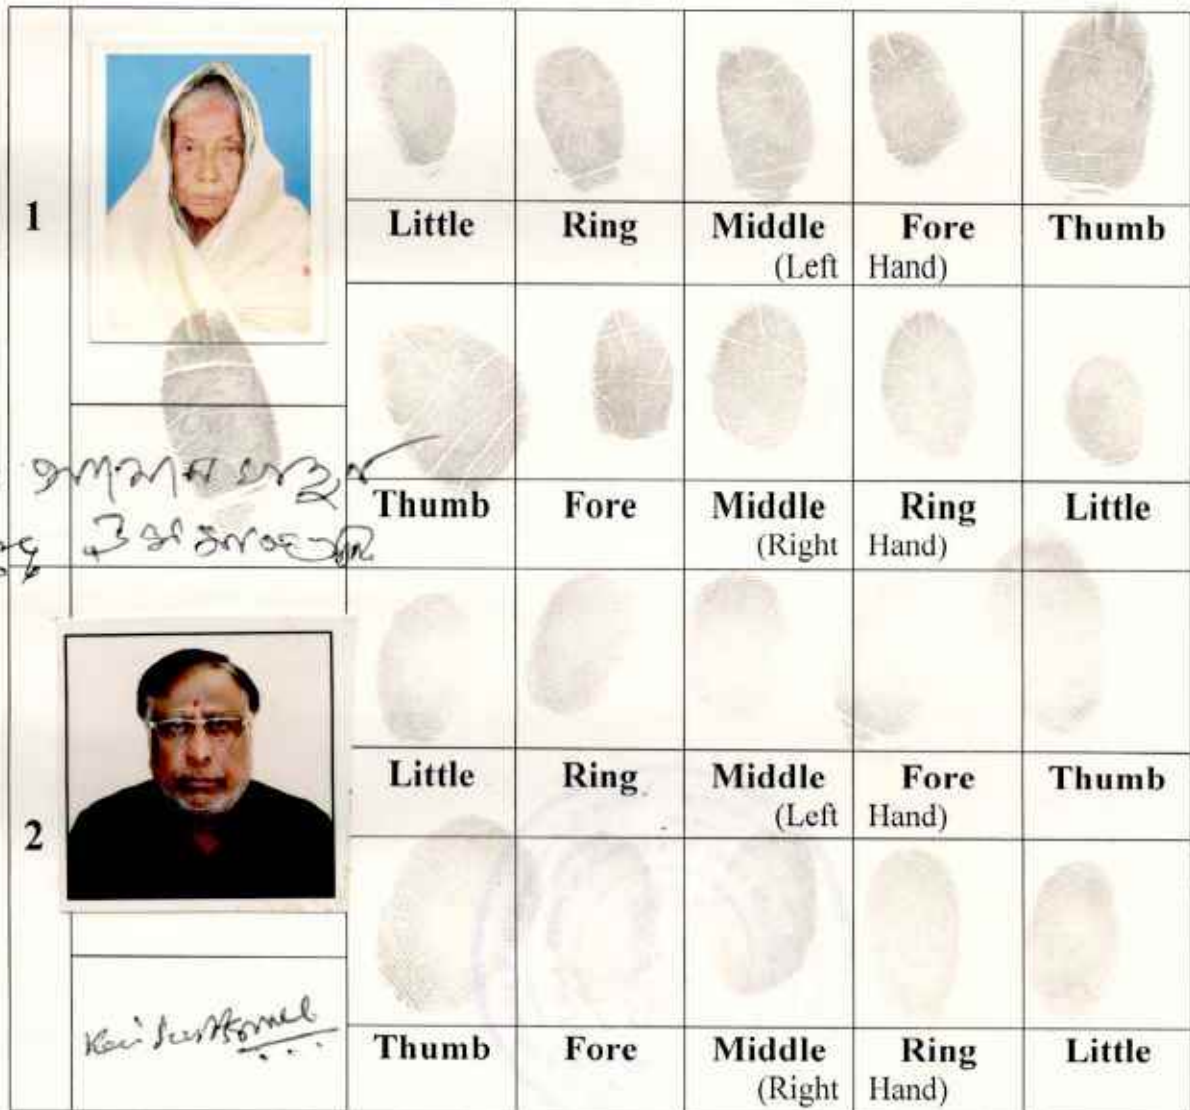 1
Little Ring Middle Fore Thumb
(Left Hand)
Thumb Fore Middle Ring Little
(Right Hand)
2
Little Ring Middle Fore Thumb
(Left Hand)
Thumb Fore Middle Ring Little
(Right Hand)